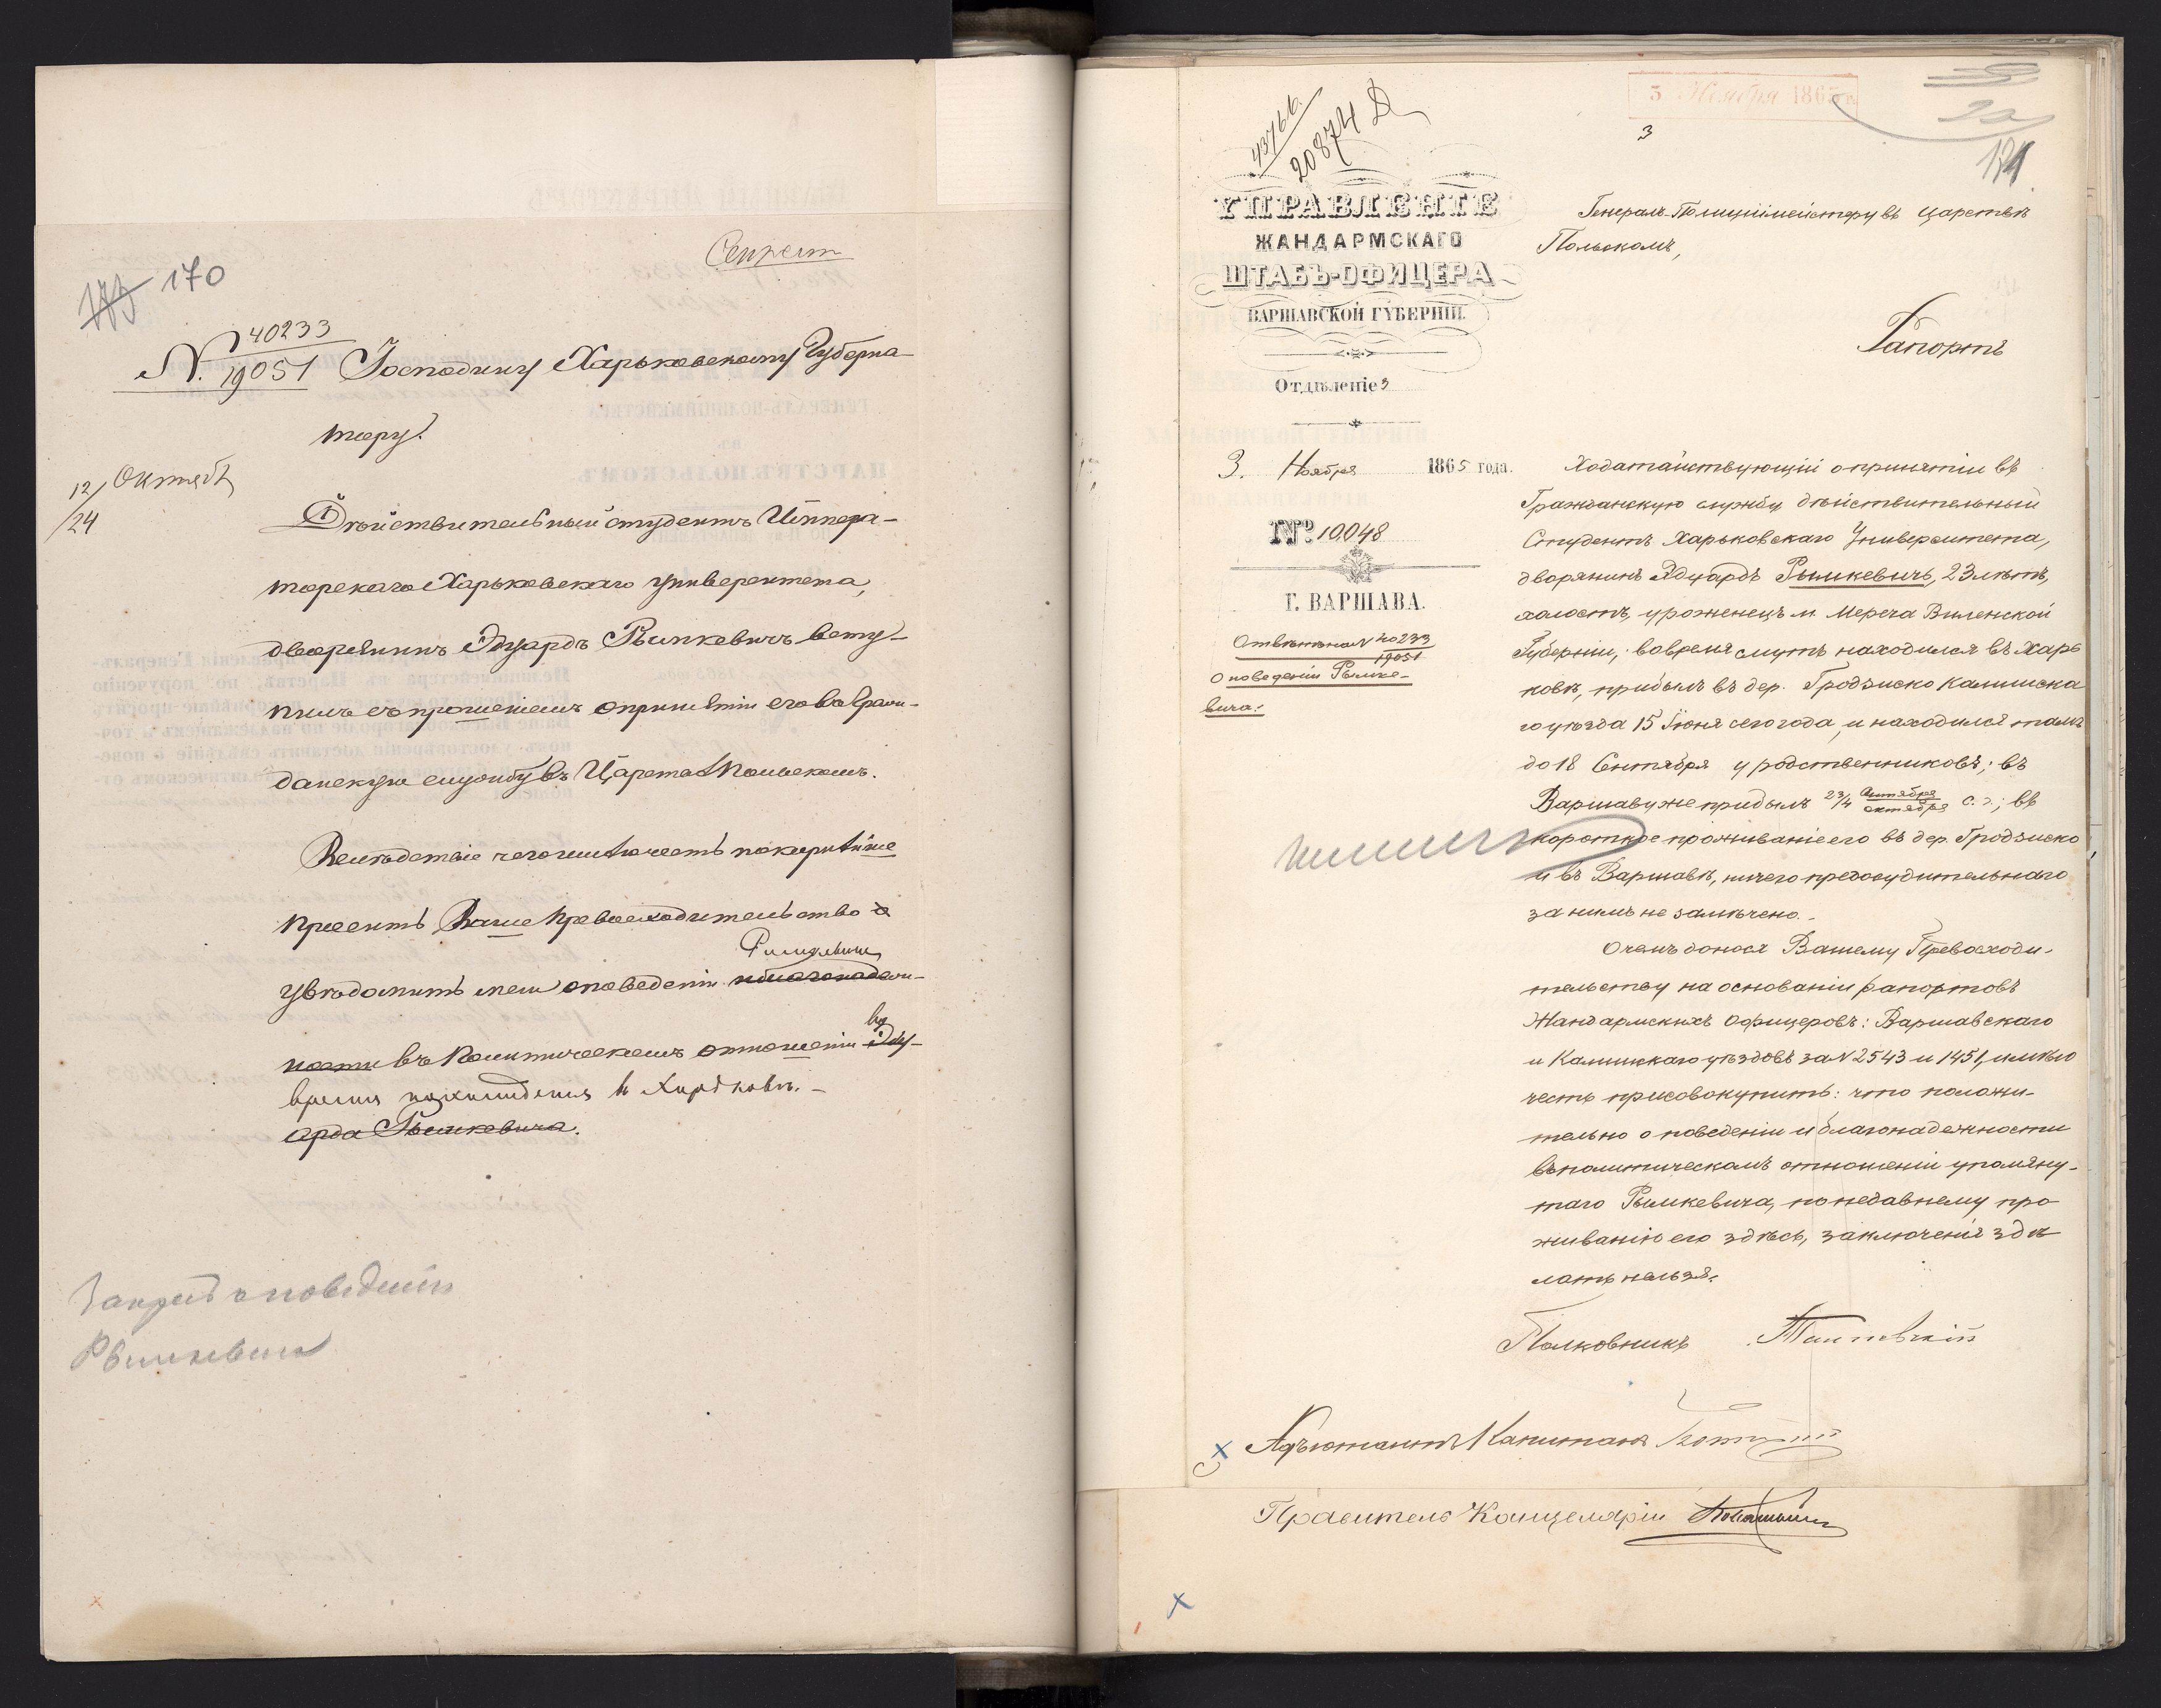 Секрет
170
N. 40233
19051
Господину Харьковскому Губерна-
тору.
12/24 Октяб
Дѣйствительный студентъ Импера-
торскаго Харьковскаго университета,
дворянинъ Эдуардъ Рымкевичъ всту-
пилъ съ прошеніемъ о принятіи его во граж-
данскую службу въ Царствѣ Польскомъ.
Вслѣдствіе чего имѣю честь покорнѣйше
просить Ваше Превосходительство
Рымкевича
увѣдомить меня о поведеніи и благонадеж-
во
ности въ политическомъ отношеніи Эду-
время нахожденія въ Харьковѣ.-
арда Рымкевича.
Запросъ о поведеніи
Рымкевича
3 Ноября 1865 г.
3
43766
20874 Д
УПРАВЛЕНІЕ
ЖАНДАРМСКАГО
ШТАБЪ-ОФИЦЕРА
ВАРШАВСКОЙ ГУБЕРНІИ.
Отдѣленіе 3
3. Ноября 1865 года.
№ 10,048
Г. ВАРШАВА.
Отвѣтъ на N 40233
19051
О поведеніи Рымке-
вича:
Генералъ-Полиціймейстеру въ Царствѣ
Польскомъ,
Рапортъ
Ходатайствующій о принятіи въ
Гражданскую службу дѣйствительный
Студентъ Харьковскаго Университета,
дворянинъ Эдуардъ Рымкевичъ, 23 лѣтъ,
холостъ, уроженецъ м. Мереча Виленской
Губерніи, во время смутъ находился въ Харь
ковѣ, прибылъ въ дер. Гродзиско Калишска
го уѣзда 15 Іюня сего года, и находился тамъ
до 18 Сентября у родственниковъ; въ
Варшаву же прибылъ 23/4 Сентября
октября с. г.; въ
короткое проживаніе его въ дер. Гродзиско
и въ Варшавѣ, ничего предосудительнаго
за нимъ не замѣчено.-
О чемъ донося Вашему Превосходи-
тельству на основаніи рапортовъ
Жандармскихъ Офицеровъ: Варшавскаго
и Калишскаго уѣздовъ за N 2543 и 1451, имѣю
честь присовокупить: что положи-
тельно о поведеніи и благонадежности
въ политическомъ отношеніи упомяну-
таго Рымкевича, по недавнему про
живанію его здѣсь, заключенія здѣ
лать нельзя.
Полковникъ
Адъютантъ Капитанъ
Правитель Канцеляріи